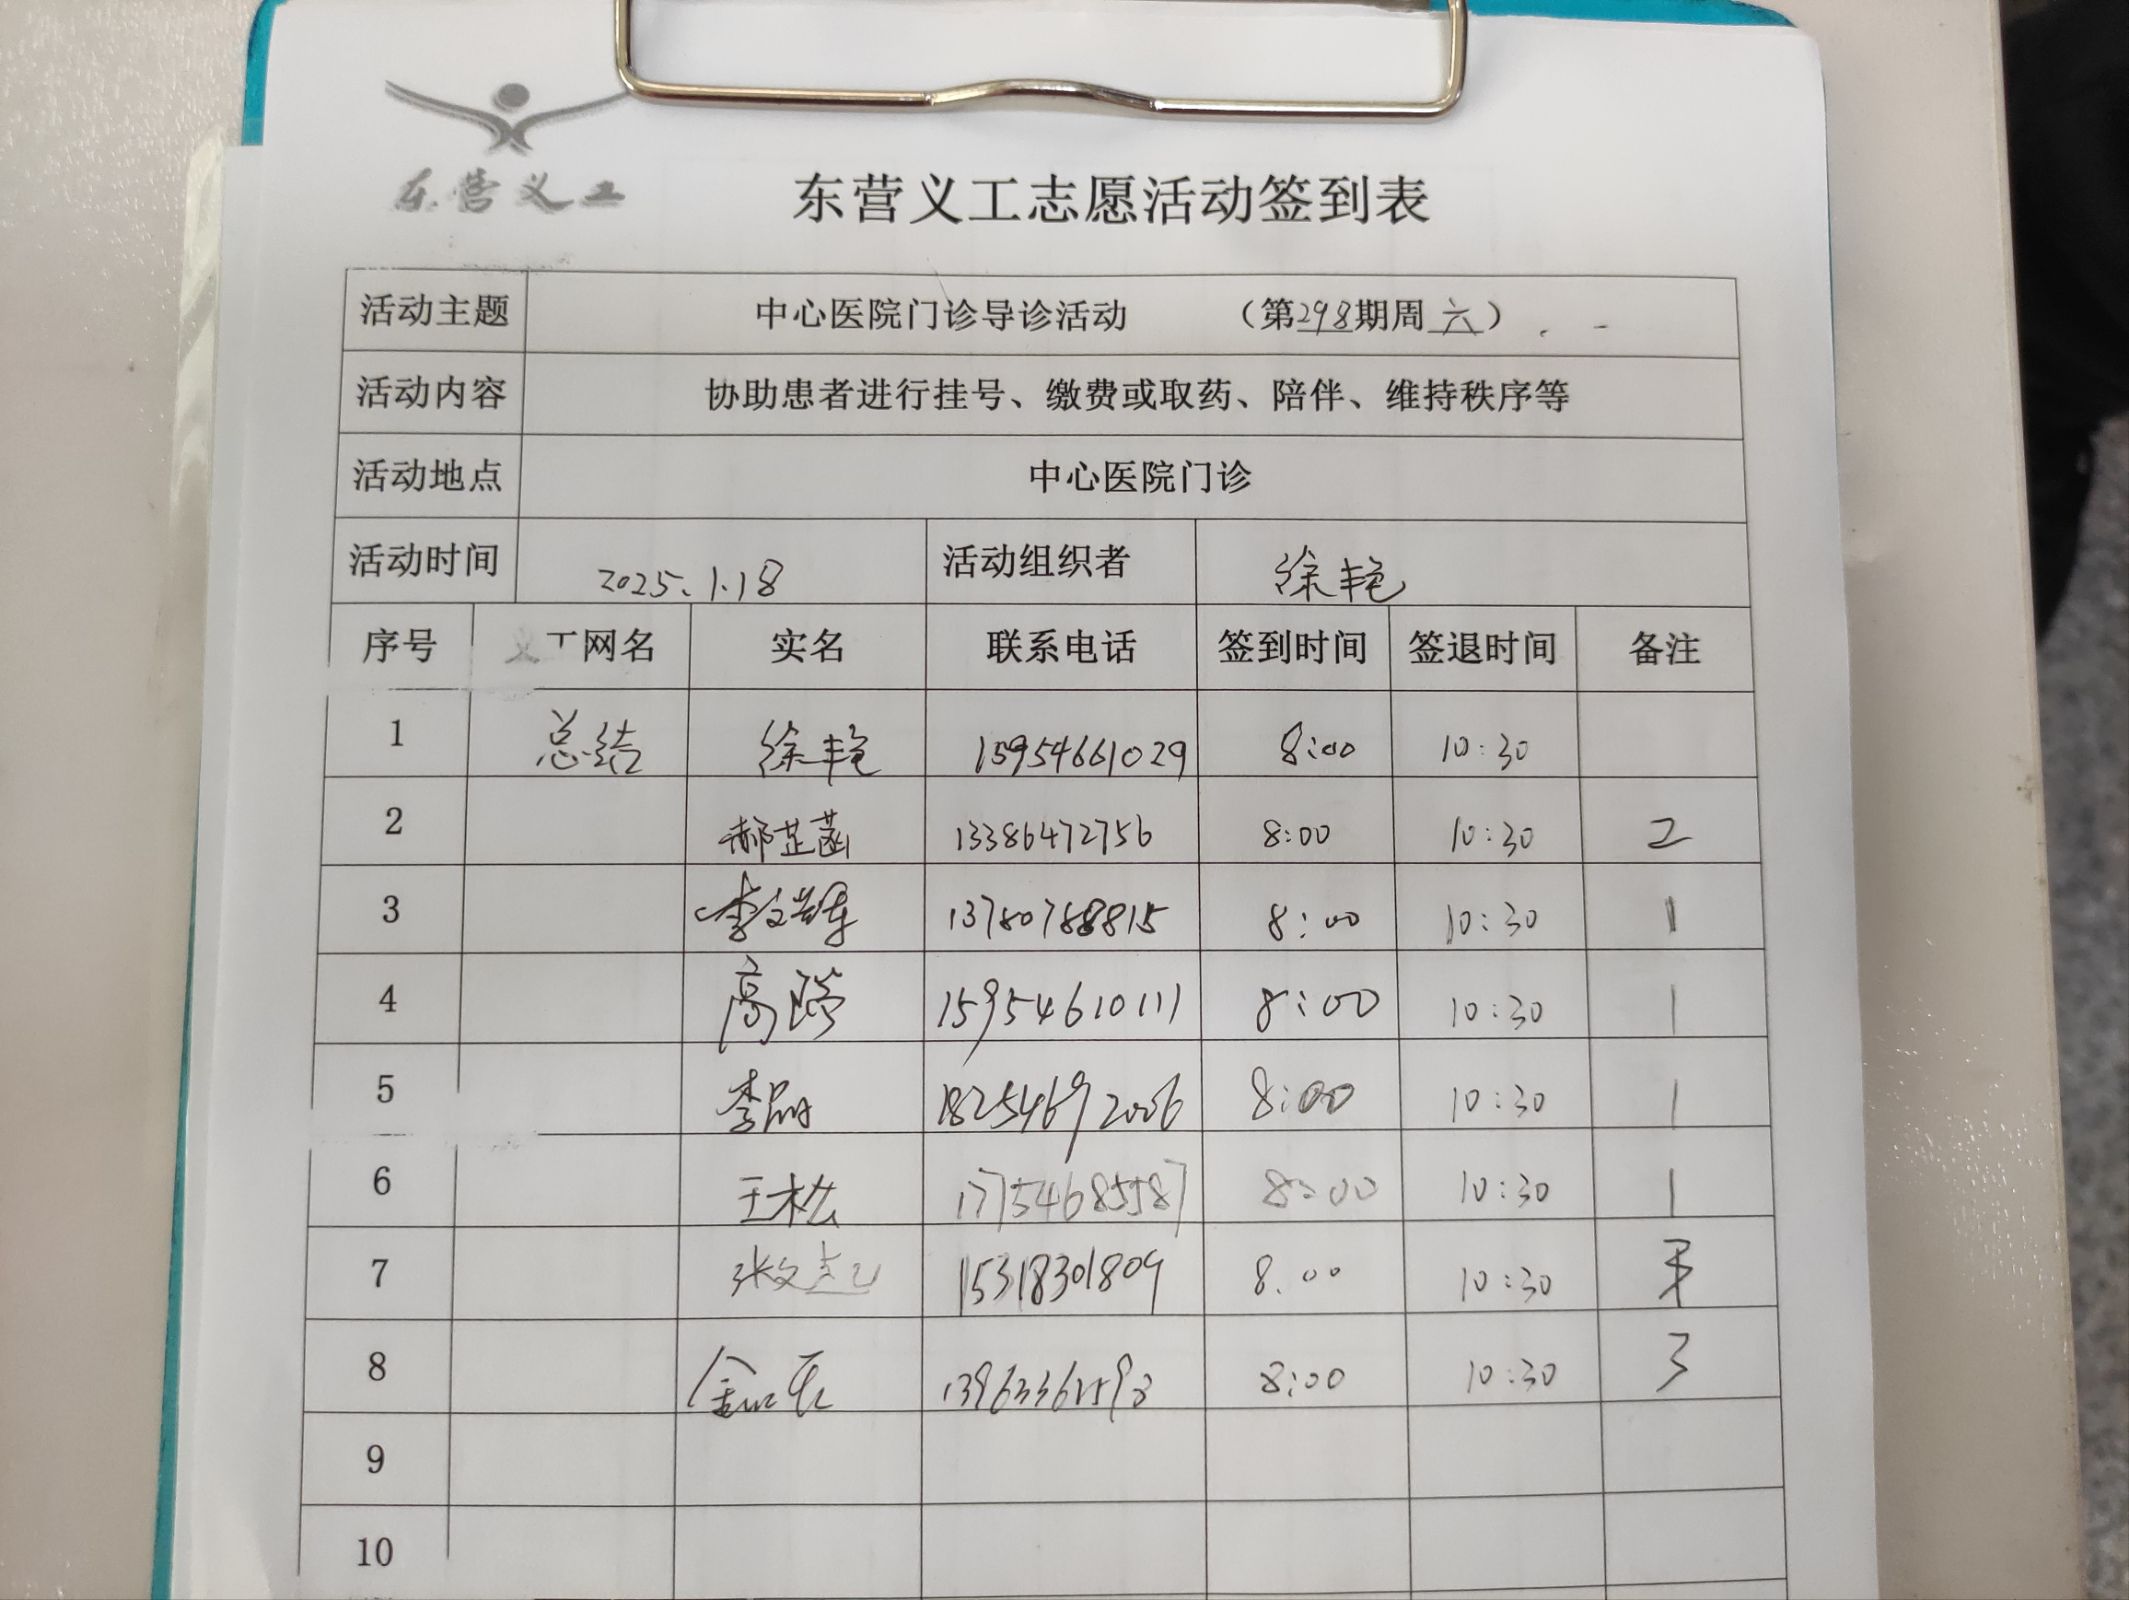 东营义工
东营义工志愿活动签到表
活动主题 中心医院门诊导诊活动 （第298期周六）
活动内容 协助患者进行挂号、缴费或取药、陪伴、维持秩序等
活动地点 中心医院门诊
活动时间 2025.1.18 活动组织者 徐艳
序号 义工网名 实名 联系电话 签到时间 签退时间 备注
1 总结 徐艳 15954661029 8:00 10:30
2 郝芷菡 13386472756 8:00 10:30 2
3 李文辉 13780788815 8:00 10:30 1
4 高 15954610111 8:00 10:30 1
5 李 18254692006 8:00 10:30 1
6 王松 17754685587 8:00 10:30 1
7 张文 15318301809 8:00 10:30
8 8:00 10:30 3
9
10